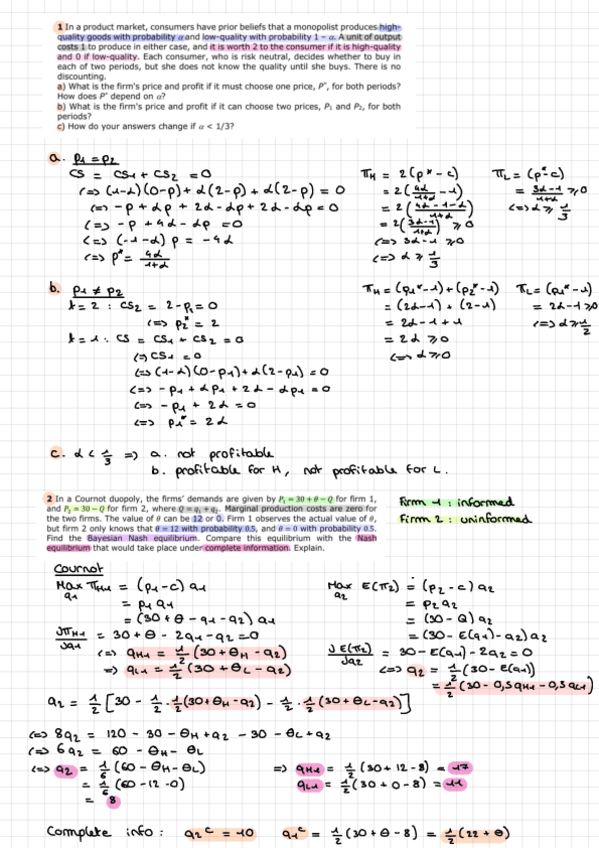 1 In a product market, consumers have prior beliefs that a monopolist produces high-
quality goods with probability α and low-quality with probability 1 − α. A unit of output
costs 1 to produce in either case, and it is worth 2 to the consumer if it is high-quality
and 0 if low-quality. Each consumer, who is risk neutral, decides whether to buy in
each of two periods, but she does not know the quality until she buys. There is no
discounting.
a) What is the firm's price and profit if it must choose one price, P*, for both periods?
How does P* depend on α?
b) What is the firm's price and profit if it can choose two prices, P₁ and P₂, for both
periods?
c) How do your answers change if α < 1/3?
a. p₁ = p₂
CS = CS₁ + CS₂ = 0
(=) (1-α)(0-p) + α(2-p) + α(2-p) = 0
(=) -p + αp + 2α - αp + 2α - αp = 0
(=) -p + 4α - αp = 0
(=) (-1-α) p = -4α
(=) p* = 4α/1+α
π_H = 2(p* - c)
= 2(4α/1+α - 1)
= 2(4α-1-α/1+α)
= 2(3α-1/1+α) ≥ 0
(=) 3α-1 ≥ 0
(=) α ≥ 1/3
π_L = (p* - c)
= 3α-1/1+α ≥ 0
(=) α ≥ 1/3
b. p₁ ≠ p₂
t = 2 : CS₂ = 2 - p₂ = 0
(=) p₂* = 2
t = 1 : CS = CS₁ + CS₂ = 0
(=) CS₁ = 0
(=) (1-α)(0-p₁) + α(2-p₁) = 0
(=) -p₁ + αp₁ + 2α - αp₁ = 0
(=) -p₁ + 2α = 0
(=) p₁* = 2α
π_H = (p₁*-1) + (p₂*-1)
= (2α-1) + (2-1)
= 2α - 1 + 1
= 2α ≥ 0
(=) α ≥ 0
π_L = (p₁* - 1)
= 2α - 1 ≥ 0
(=) α ≥ 1/2
c. α < 1/3 => a. not profitable
b. profitable for H, not profitable for L.
2 In a Cournot duopoly, the firms' demands are given by P₁ = 30 + θ − Q for firm 1,
and P₂ = 30 − Q for firm 2, where Q = q₁ + q₂. Marginal production costs are zero for
the two firms. The value of θ can be 12 or 0. Firm 1 observes the actual value of θ,
but firm 2 only knows that θ = 12 with probability 0.5, and θ = 0 with probability 0.5.
Find the Bayesian Nash equilibrium. Compare this equilibrium with the Nash
equilibrium that would take place under complete information. Explain.
Firm 1 : informed
Firm 2 : uninformed
Cournot
Max q₁ π_H1 = (p₁ - c) q₁
= p₁ q₁
= (30 + θ - q₁ - q₂) q₁
∂π_H1/∂q₁ = 30 + θ - 2q₁ - q₂ = 0
(=) q_H1 = 1/2 (30 + θ_H - q₂)
=> q_L1 = 1/2 (30 + θ_L - q₂)
Max q₂ E(π₂) = (p₂ - c) q₂
= p₂ q₂
= (30 - Q) q₂
= (30 - E(q₁) - q₂) q₂
∂E(π₂)/∂q₂ = 30 - E(q₁) - 2q₂ = 0
(=) q₂ = 1/2 (30 - E(q₁))
= 1/2 (30 - 0,5 q_H1 - 0,5 q_L1)
q₂ = 1/2 [30 - 1/2 · 1/2 (30 + θ_H - q₂) - 1/2 · 1/2 (30 + θ_L - q₂)]
(=) 8q₂ = 120 - 30 - θ_H + q₂ - 30 - θ_L + q₂
(=) 6q₂ = 60 - θ_H - θ_L
(=) q₂ = 1/6 (60 - θ_H - θ_L)
= 1/6 (60 - 12 - 0)
= 8
=> q_H1 = 1/2 (30 + 12 - 8) = 17
q_L1 = 1/2 (30 + 0 - 8) = 11
Complete info : q₂ᶜ = 10 q₁ᶜ = 1/2 (30 + θ - 8) = 1/2 (22 + θ)